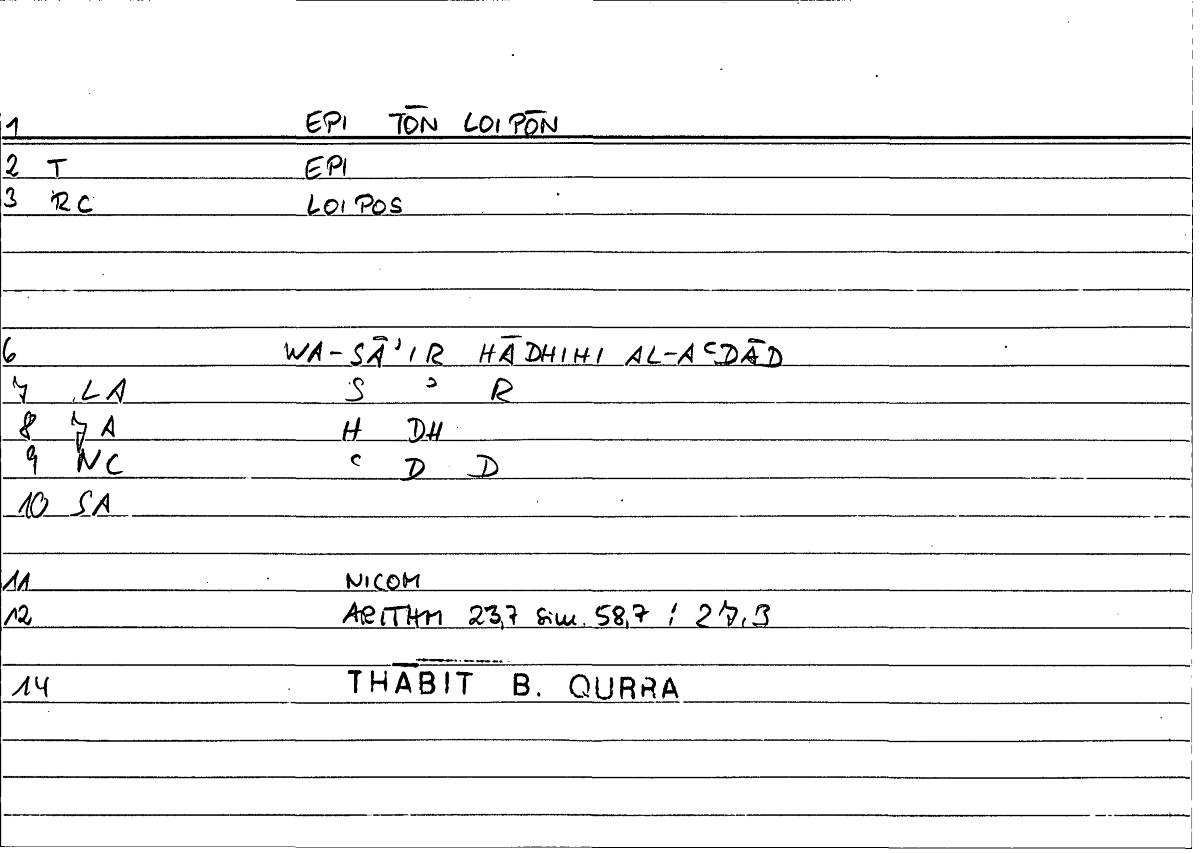 1 EPI TŌN LOIPŌN
2 T EPI
3 RC LOIPOS
6 WA-SĀʾIR HĀDHIHI AL-AʿDĀD
7 LA S ʾ R
8 7A H DH
9 NC ʿ D D
10 SA
11 NICOM
12 ARITHM 23,7 sim. 58,7 ; 27,3
14 THĀBIT B. QURRA